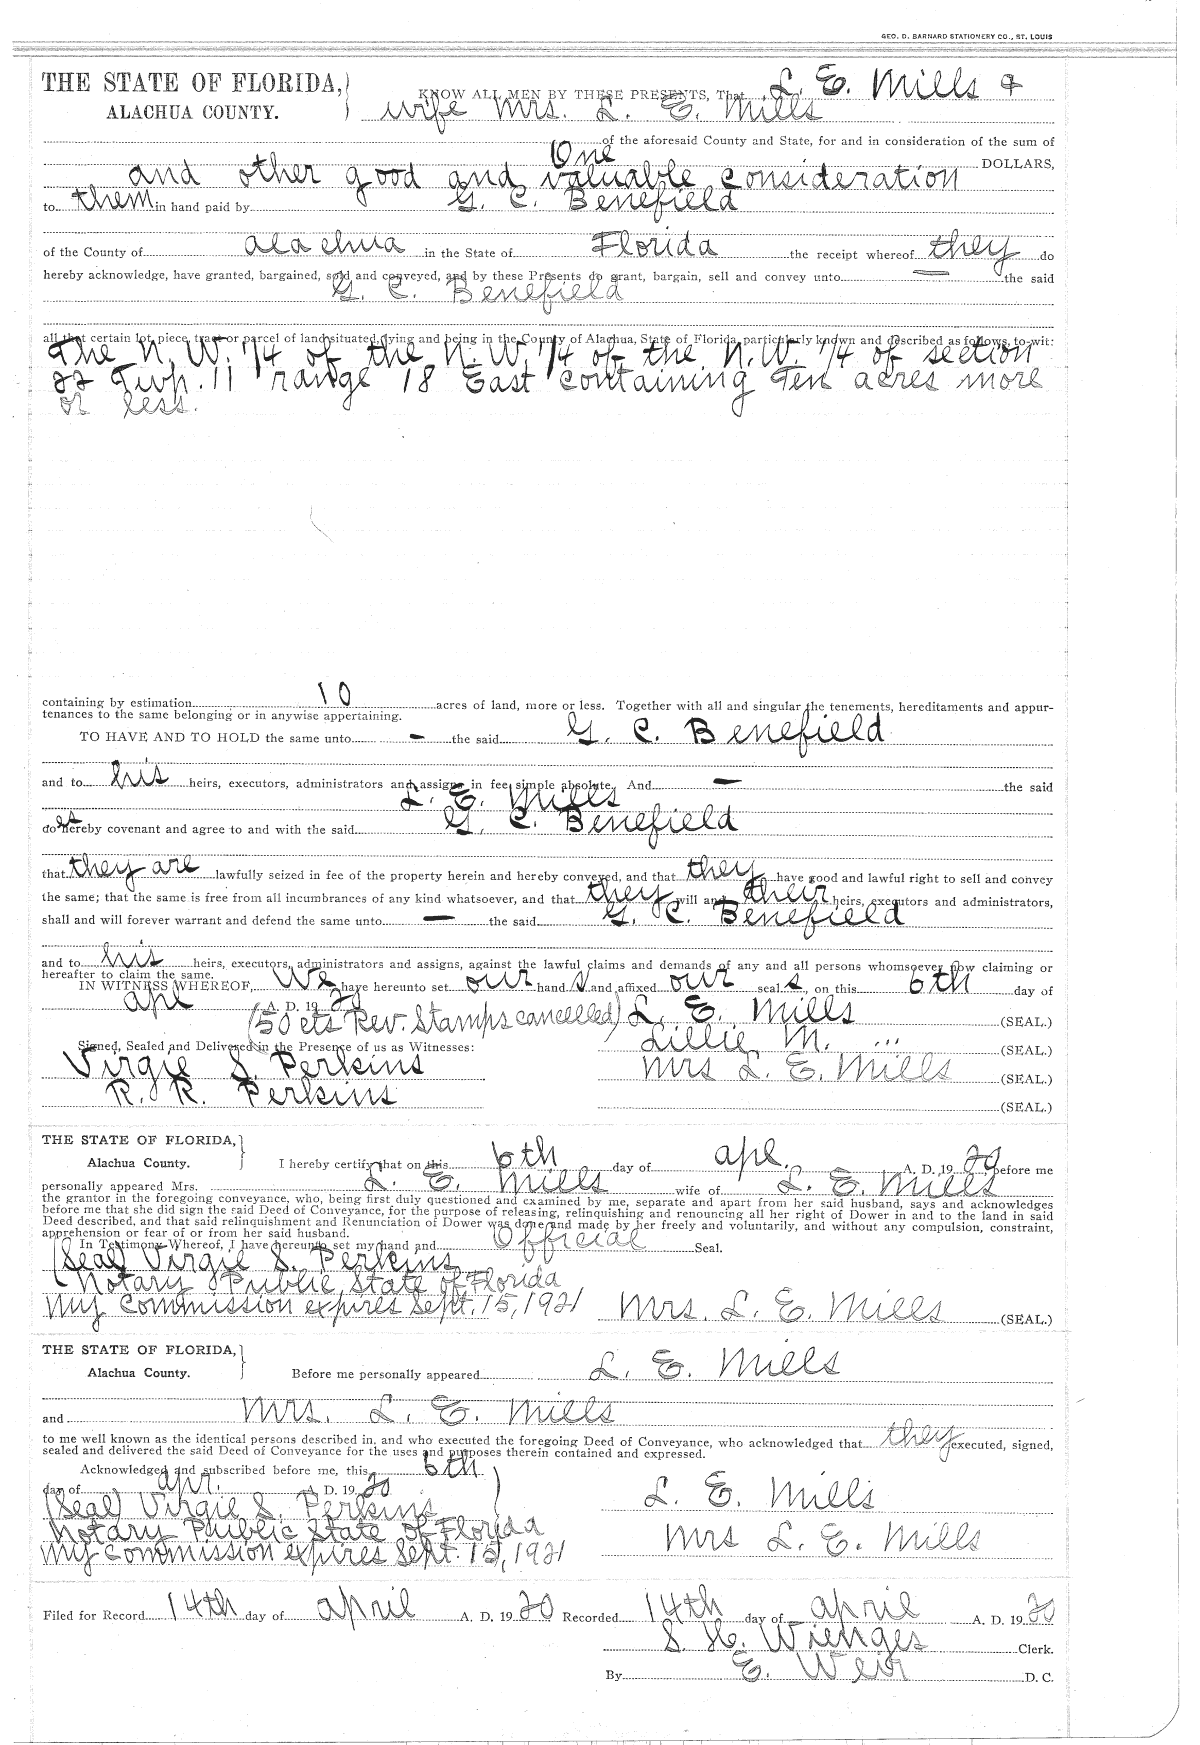 GEO. D. BARNARD STATIONERY CO., ST. LOUIS
THE STATE OF FLORIDA,
ALACHUA COUNTY.
KNOW ALL MEN BY THESE PRESENTS, That L. E. Mills &
wife Mrs. L. E. Mills
of the aforesaid County and State, for and in consideration of the sum of
One DOLLARS,
and other good and valuable consideration
to them in hand paid by G. C. Benefield
of the County of alachua in the State of Florida the receipt whereof they do
hereby acknowledge, have granted, bargained, sold and conveyed, and by these Presents do grant, bargain, sell and convey unto — the said
G. C. Benefield
all that certain lot, piece, tract or parcel of land situated, lying and being in the County of Alachua, State of Florida, particularly known and described as follows, to-wit:
The N. W. 1/4 of the N. W. 1/4 of the N. W. 1/4 of section
22 Twp. 11 range 18 East containing ten acres more
or less.
containing by estimation 10 acres of land, more or less. Together with all and singular the tenements, hereditaments and appur-
tenances to the same belonging or in anywise appertaining.
TO HAVE AND TO HOLD the same unto — the said G. C. Benefield
and to his heirs, executors, administrators and assigns in fee simple absolute. And — the said
L. E. Mills
does hereby covenant and agree to and with the said G. C. Benefield
that they are lawfully seized in fee of the property herein and hereby conveyed, and that they have good and lawful right to sell and convey
the same; that the same is free from all incumbrances of any kind whatsoever, and that they will and their heirs, executors and administrators,
shall and will forever warrant and defend the same unto — the said G. C. Benefield
and to his heirs, executors, administrators and assigns, against the lawful claims and demands of any and all persons whomsoever now claiming or
hereafter to claim the same.
IN WITNESS WHEREOF, We have hereunto set our hand s and affixed our seal s, on this 6th day of
apl A. D. 19 20
(50 cts Rev. Stamps cancelled) L. E. Mills (SEAL.)
Signed, Sealed and Delivered in the Presence of us as Witnesses: Lillie M. ... (SEAL.)
Virgie S. Perkins Mrs L. E. Mills (SEAL.)
R. R. Perkins (SEAL.)
THE STATE OF FLORIDA,
Alachua County.
I hereby certify that on this 6th day of apl. A. D. 19 20 before me
personally appeared Mrs. L. E. Mills wife of L. E. Mills
the grantor in the foregoing conveyance, who, being first duly questioned and examined by me, separate and apart from her said husband, says and acknowledges
before me that she did sign the said Deed of Conveyance, for the purpose of releasing, relinquishing and renouncing all her right of Dower in and to the land in said
Deed described, and that said relinquishment and Renunciation of Dower was done and made by her freely and voluntarily, and without any compulsion, constraint,
apprehension or fear of or from her said husband.
In Testimony Whereof, I have hereunto set my hand and Official Seal.
(Seal) Virgie S. Perkins
Notary Public State of Florida
My Commission expires Sept. 15, 1921 Mrs. L. E. Mills (SEAL.)
THE STATE OF FLORIDA,
Alachua County.
Before me personally appeared L. E. Mills
and Mrs. L. E. Mills
to me well known as the identical persons described in, and who executed the foregoing Deed of Conveyance, who acknowledged that they executed, signed,
sealed and delivered the said Deed of Conveyance for the uses and purposes therein contained and expressed.
Acknowledged and subscribed before me, this 6th
day of apr. A. D. 19 20
(Seal) Virgie S. Perkins L. E. Mills
Notary Public State of Florida
My Commission expires Sept. 15, 1921 Mrs L. E. Mills
Filed for Record 14th day of april A. D. 19 20 Recorded 14th day of april A. D. 19 20
S. H. Wienges Clerk.
By E. Weir D. C.